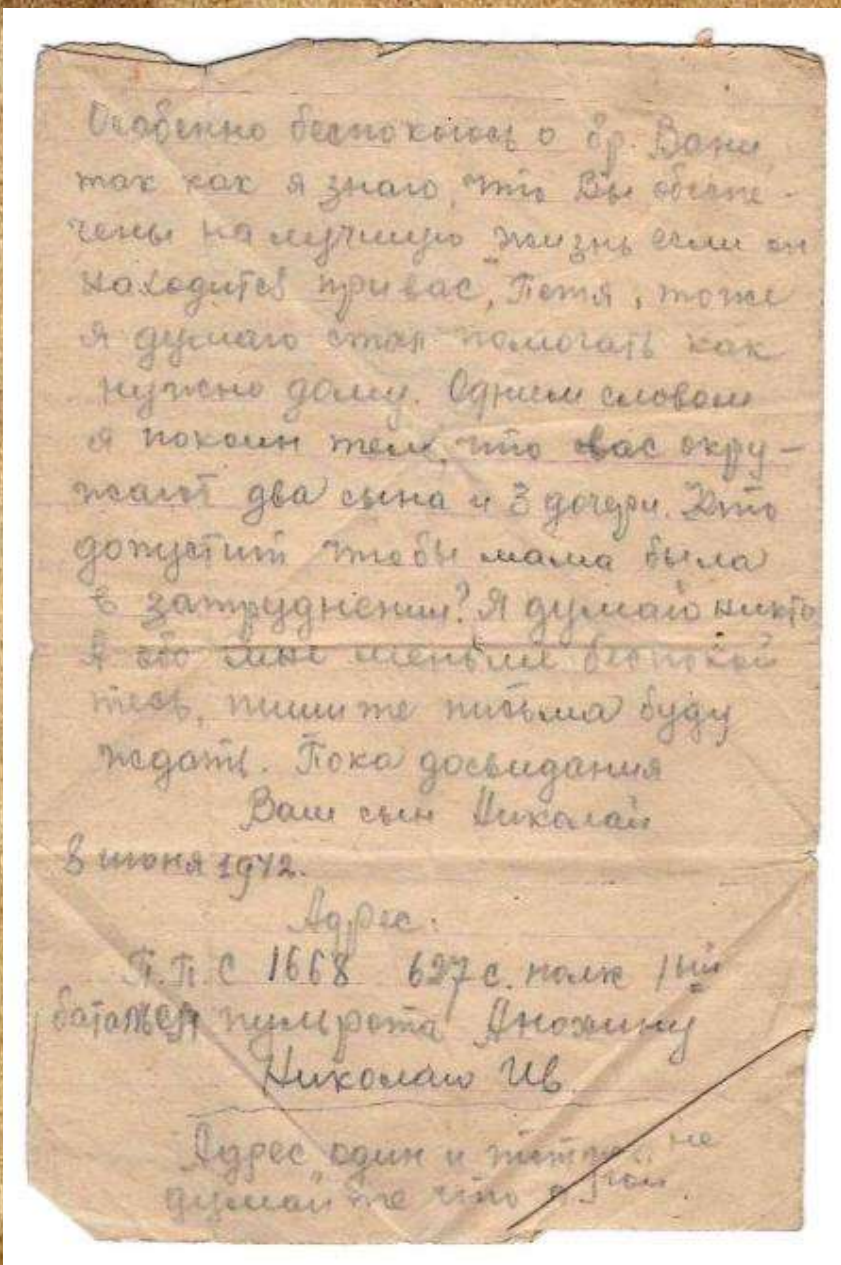 Особенно беспокоюсь о бр. Вани
так как я знаю, что Вы обеспе-
чены на лучшую жизнь если он
находится при вас, Петя, тоже
я думаю стал помогать как
нужно дому. Одним словом
я покоин тем, что вас окру-
жают два сына и 3 дочери. Кто
допустит чтобы мама была
в затруднении? Я думаю никто
А обо мне меньше беспокой
тесь, пишите письма буду
ждать. Пока досвидания
Ваш сын Николай
8 июня 1942.
Адрес:
П.П.С 1668 627 с. полк 1ый
батальон пульрота Анохину
Николаю Ив.
Адрес один и тот же не
думайте что